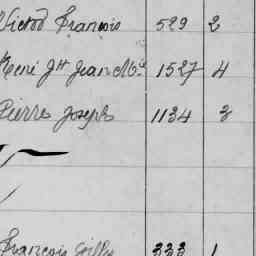 Victor François 529 2
René Jh Jean Mie 1527 4
Pierre Joseph 1134 3
François Gilles 333 1